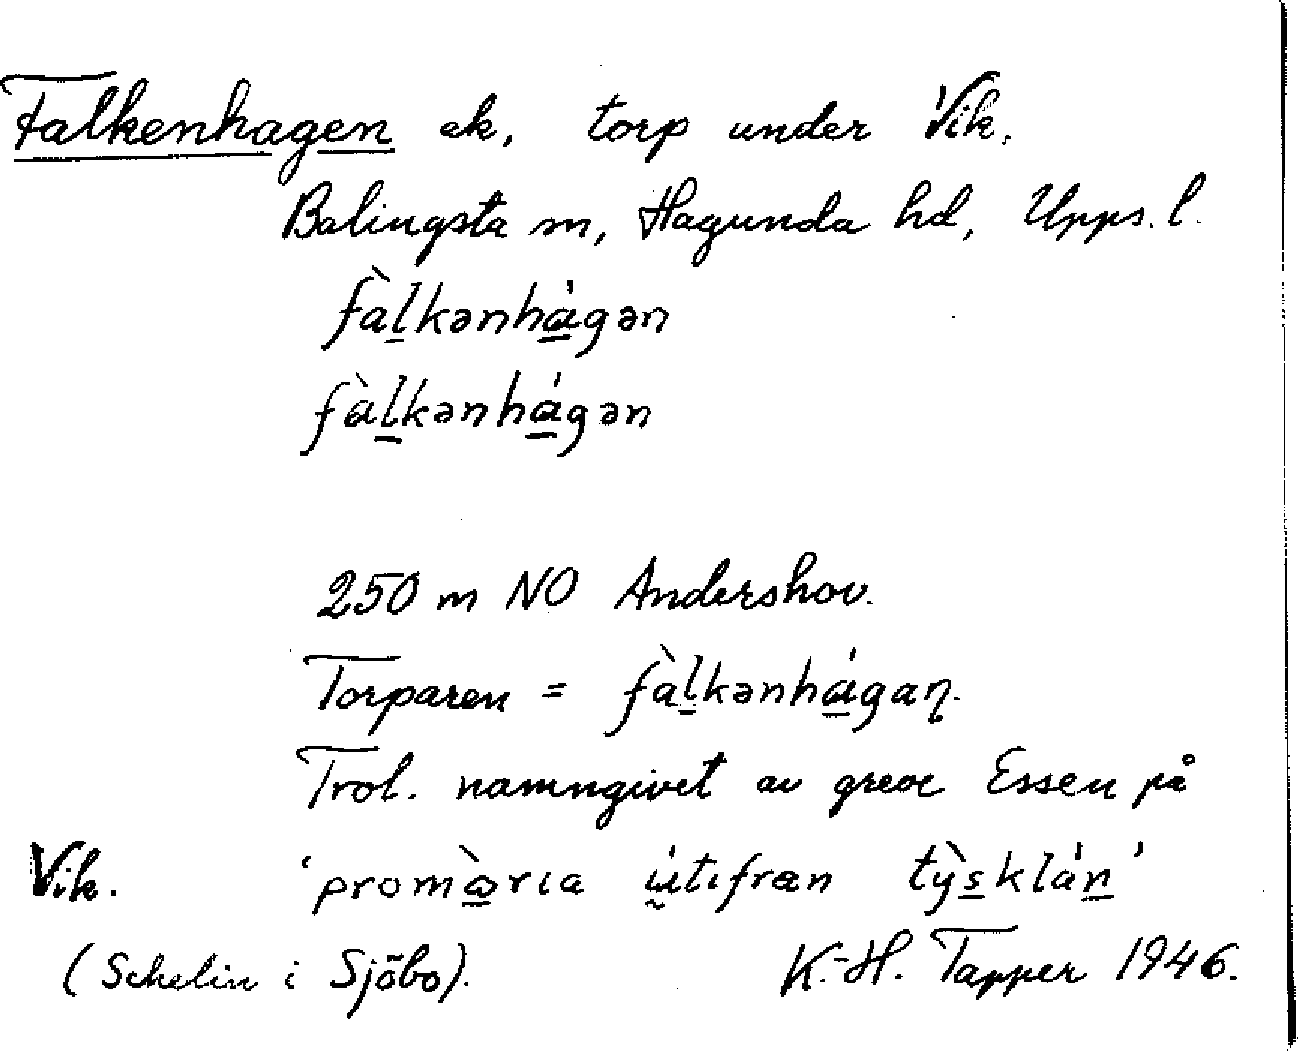 Falkenhagen ek, torp under Vik.
Balingsta sn, Hagunda hd, Upps. l.
fàlkənhágən
fàlkənhágən
250 m NO Andershov.
Torparen = fàlkənhágaɳ.
Trol. namngivet av greve Essen på
Vik. 'promària ùtıfræn tỳsklán'
(Schelin i Sjöbo). K.-H. Tapper 1946.